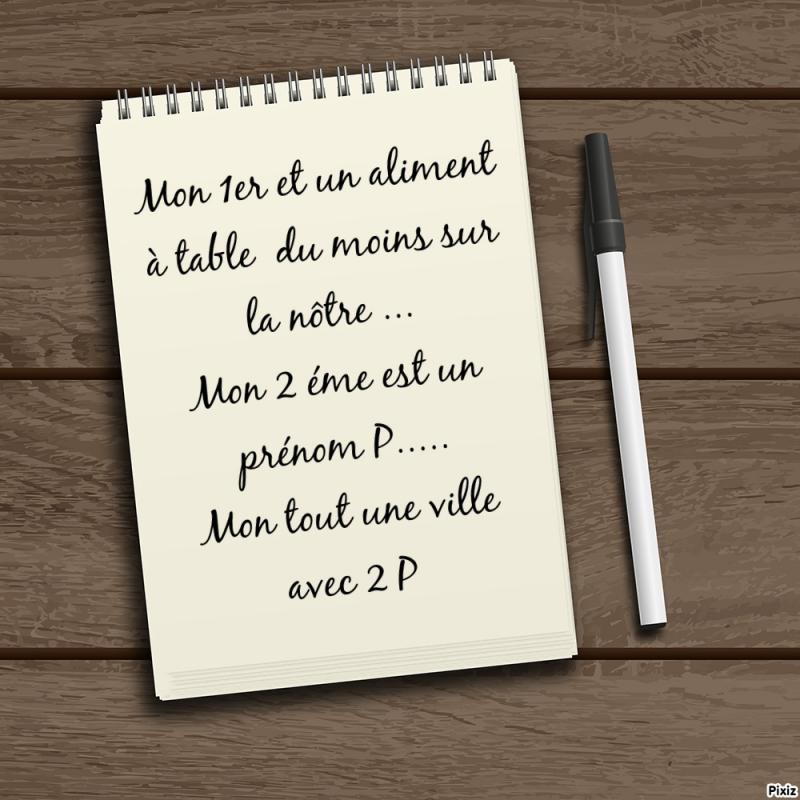 Mon 1er et un aliment
à table du moins sur
la nôtre ...
Mon 2 éme est un
prénom P.....
Mon tout une ville
avec 2 P
Pixiz